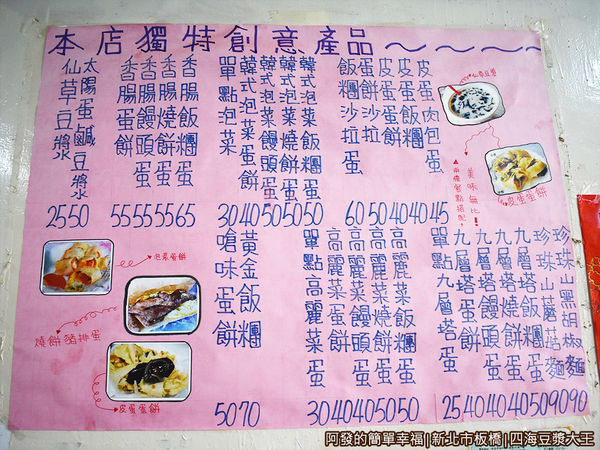 本店獨特創意產品～～～～
仙草豆漿 25
太陽蛋鹹豆漿 50
香腸蛋餅 55
香腸饅頭蛋 55
香腸燒餅蛋 55
香腸飯糰蛋 65
單點泡菜 30
韓式泡菜蛋餅 40
韓式泡菜饅頭蛋 50
韓式泡菜燒餅蛋 50
韓式泡菜飯糰蛋 50
飯糰沙拉蛋 60
蛋餅沙拉 50
皮蛋蛋餅 40
皮蛋飯糰 40
皮蛋肉包蛋 45
仙草豆漿
美味無比!
皮蛋蛋餅
泡菜蛋餅
燒餅豬排蛋
皮蛋蛋餅
嗆味蛋餅 50
黃金飯糰 70
單點高麗菜 30
高麗菜蛋餅 40
高麗菜饅頭蛋 40
高麗菜燒餅蛋 50
高麗菜飯糰蛋 50
單點九層塔蛋 25
九層塔蛋餅 40
九層塔饅頭蛋 40
九層塔燒餅蛋 40
九層塔飯糰蛋 50
珍珠山蘑菇麵 90
珍珠山黑胡椒麵 90
阿發的簡單幸福|新北市板橋|四海豆漿大王